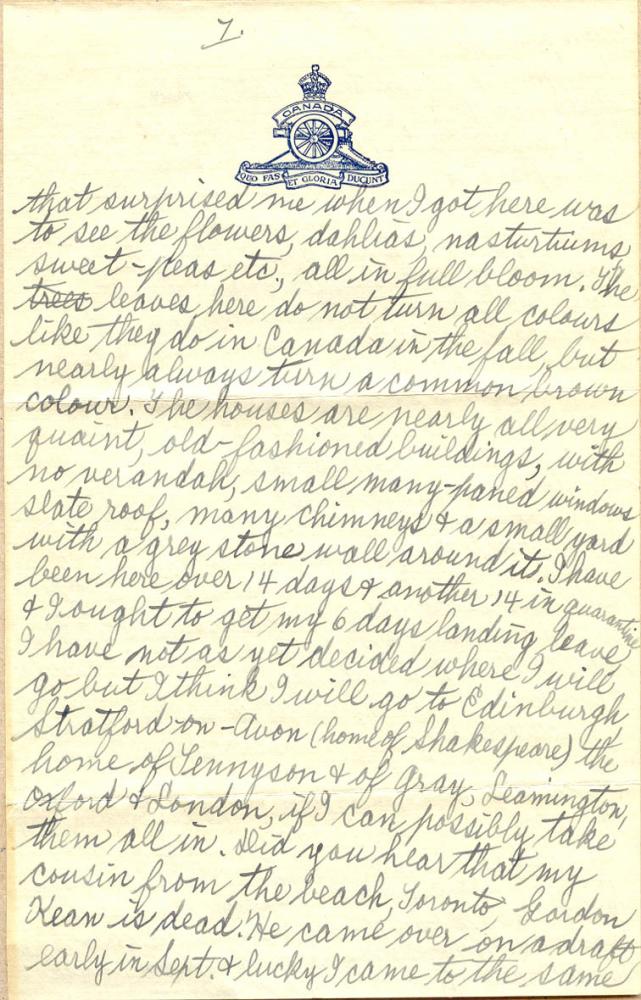 7.
CANADA
QUO FAS ET GLORIA DUCUNT
that surprised me when I got here was
to see the flowers, dahlias, nasturtiums
sweet-peas etc., all in full bloom. The
trees leaves here do not turn all colours
like they do in Canada in the fall, but
nearly always turn a common brown
colour. The houses are nearly all very
quaint, old-fashioned buildings, with
no verandah, small many-paned windows
slate roof, many chimneys & a small yard
with a grey stone wall around it. I have
been here over 14 days & another 14 in quarantine
& I ought to get my 6 days landing leave
I have not as yet decided where I will
go but I think I will go to Edinburgh,
Stratford-on-Avon (home of Shakespeare) the
home of Tennyson & of Gray, Leamington,
Oxford & London, if I can possibly take
them all in. Did you hear that my
cousin from the beach, Toronto, Gordon
Kean is dead. He came over on a draft
early in Sept. & lucky I came to the same